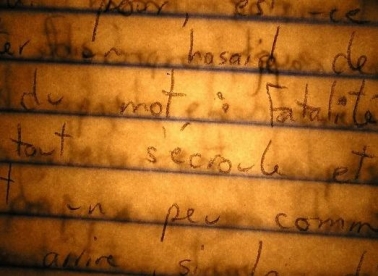 pour, est-ce
hasard de
du mot : Fatalité
tout s'écroule et
un peu comm
arrive si la